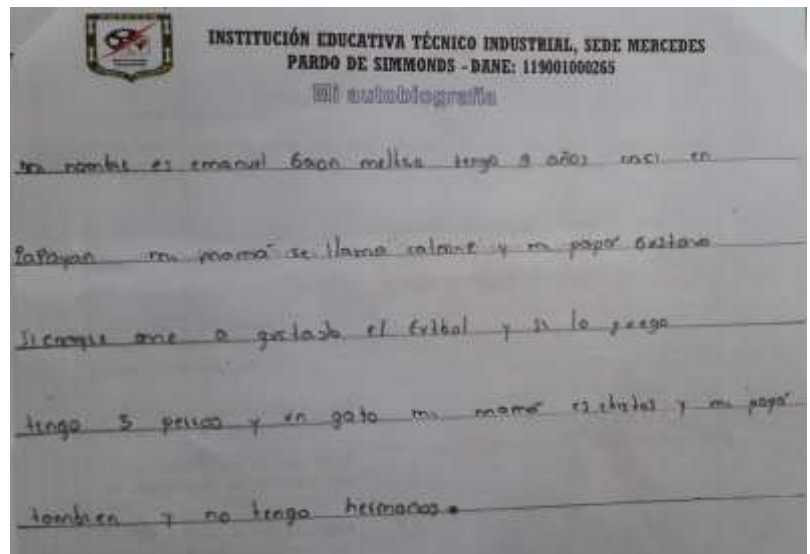 INSTITUCIÓN EDUCATIVA TÉCNICO INDUSTRIAL, SEDE MERCEDES
PARDO DE SIMMONDS - DANE: 119001000265
Mi autobiografía
mi nombre es emanuel tengo 9 años naci en
PaPayan mi mamá se llama y mi papá Gustavo
Siempre me a gustado el futbol y si lo juego
tengo y un gato mi mamá es y mi papá
tambien y no tengo hermanos.